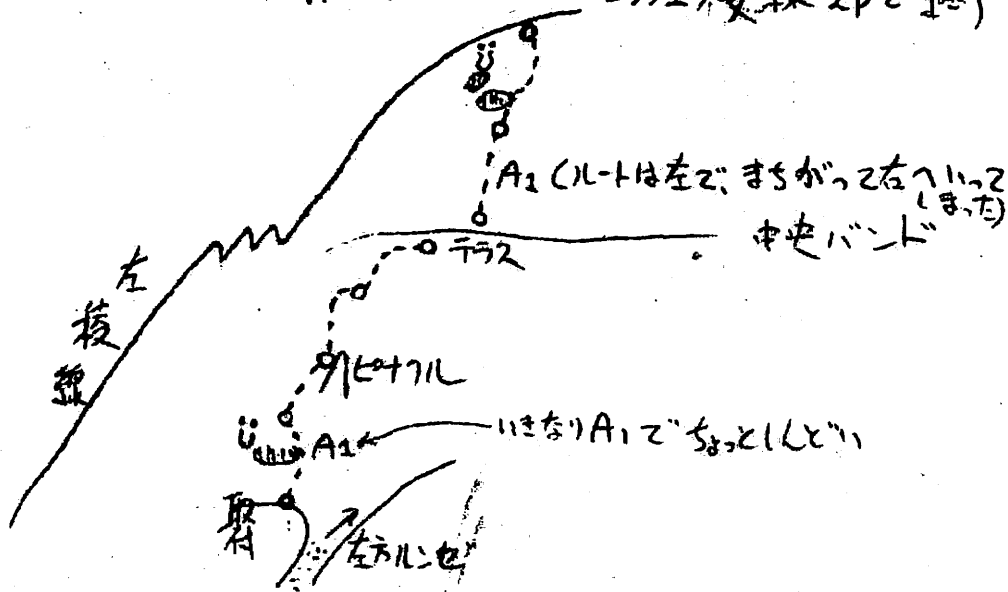 A1（ルートは左で、まちがって右へいって
しまった）
テラス
中央バンド
左稜線
小ピナクル
A1
いきなりA1でちょっとしんどい
取付
左方ルンゼ